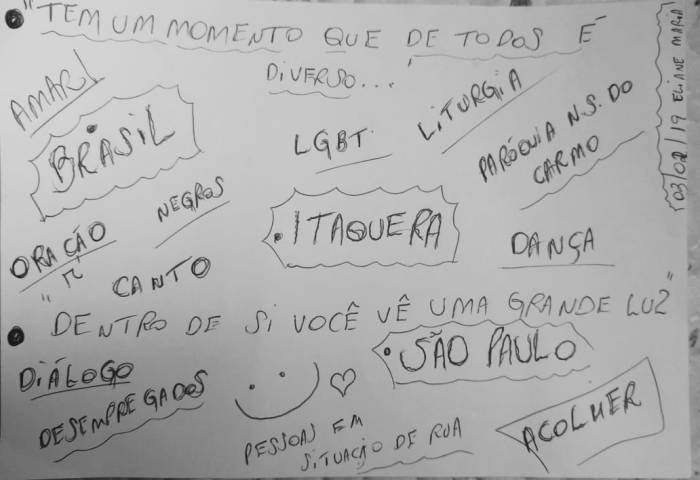 "TEM UM MOMENTO QUE DE TODOS É
DIVERSO...
AMAR!
BRASIL
LGBT
LITURGIA
PARÓQUIA N.S. DO
CARMO
ORAÇÃO
NEGROS
ITAQUERA
DANÇA
CANTO
DENTRO DE SI VOCÊ VÊ UMA GRANDE LUZ"
DIÁLOGO
SÃO PAULO
DESEMPREGADOS
PESSOAS EM
SITUAÇÃO DE RUA
ACOLHER
ELIANE MARIA